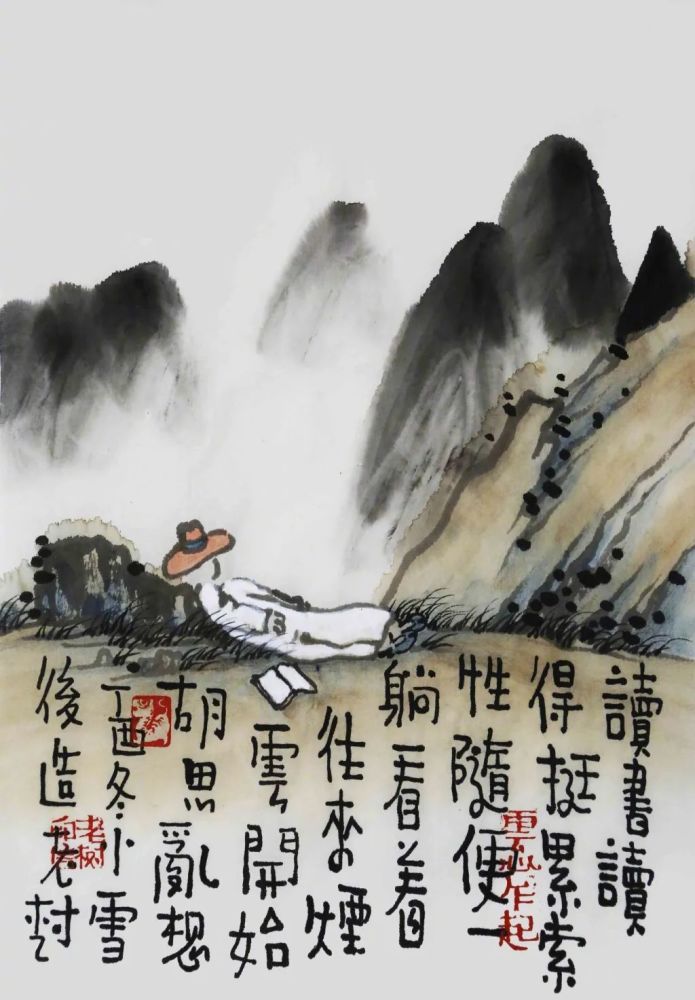 讀書讀
得挺累索
性隨便一
躺看着
往來煙
雲開始
胡思亂想
丁酉冬小雪
後造老树
老树